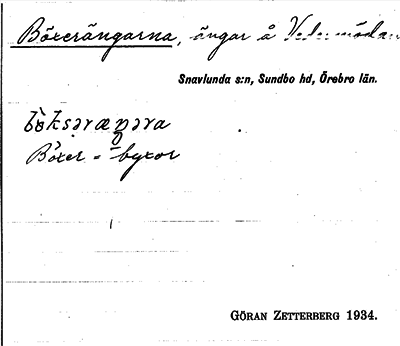 Böxerängarna, ängar å
Snavlunda s:n, Sundbo hd, Örebro län.
Böxer = byxor
GÖRAN ZETTERBERG 1934.